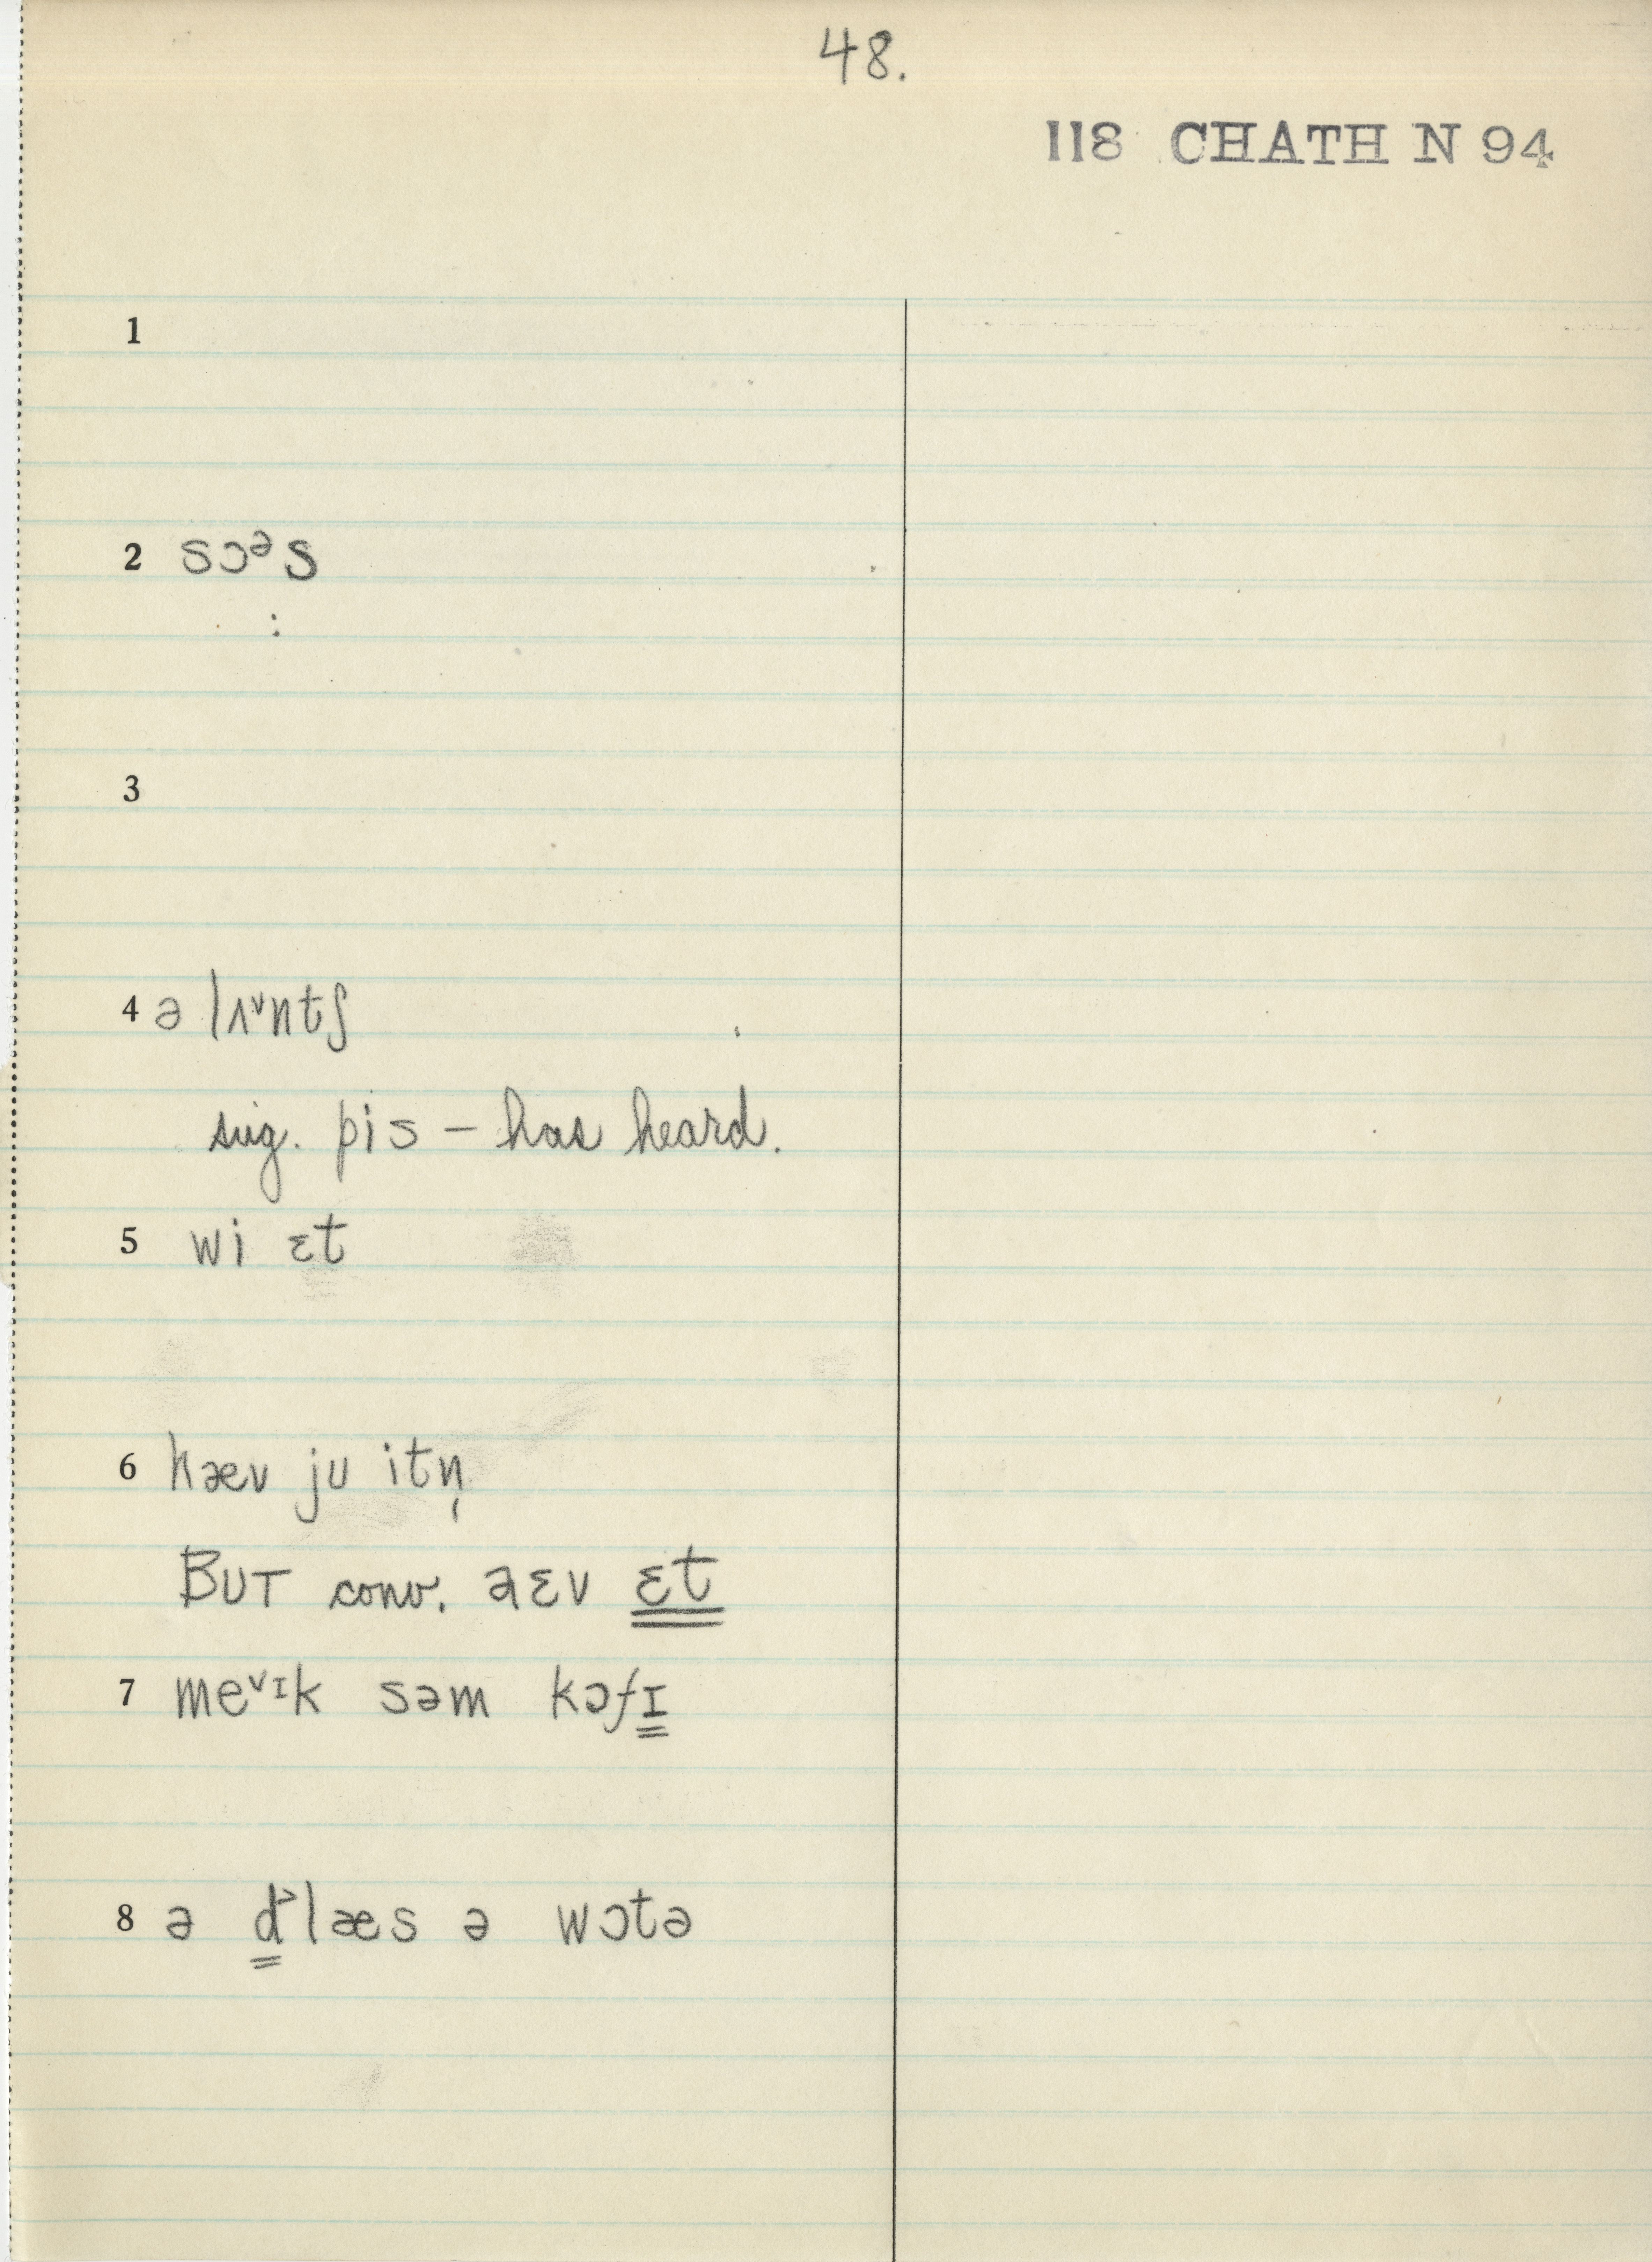 48.
118 CHATH N 94
1
2 sɔᵊs
:
3
4 ə lʌ˅ntʃ
sug. pis – has heard.
5 wi ɛt
6 hæv ju itn̩
BUT conv. aɛv ɛt
7 me˅ɪk səm kɔfɪ
8 ə d˃læs ə wɔtə